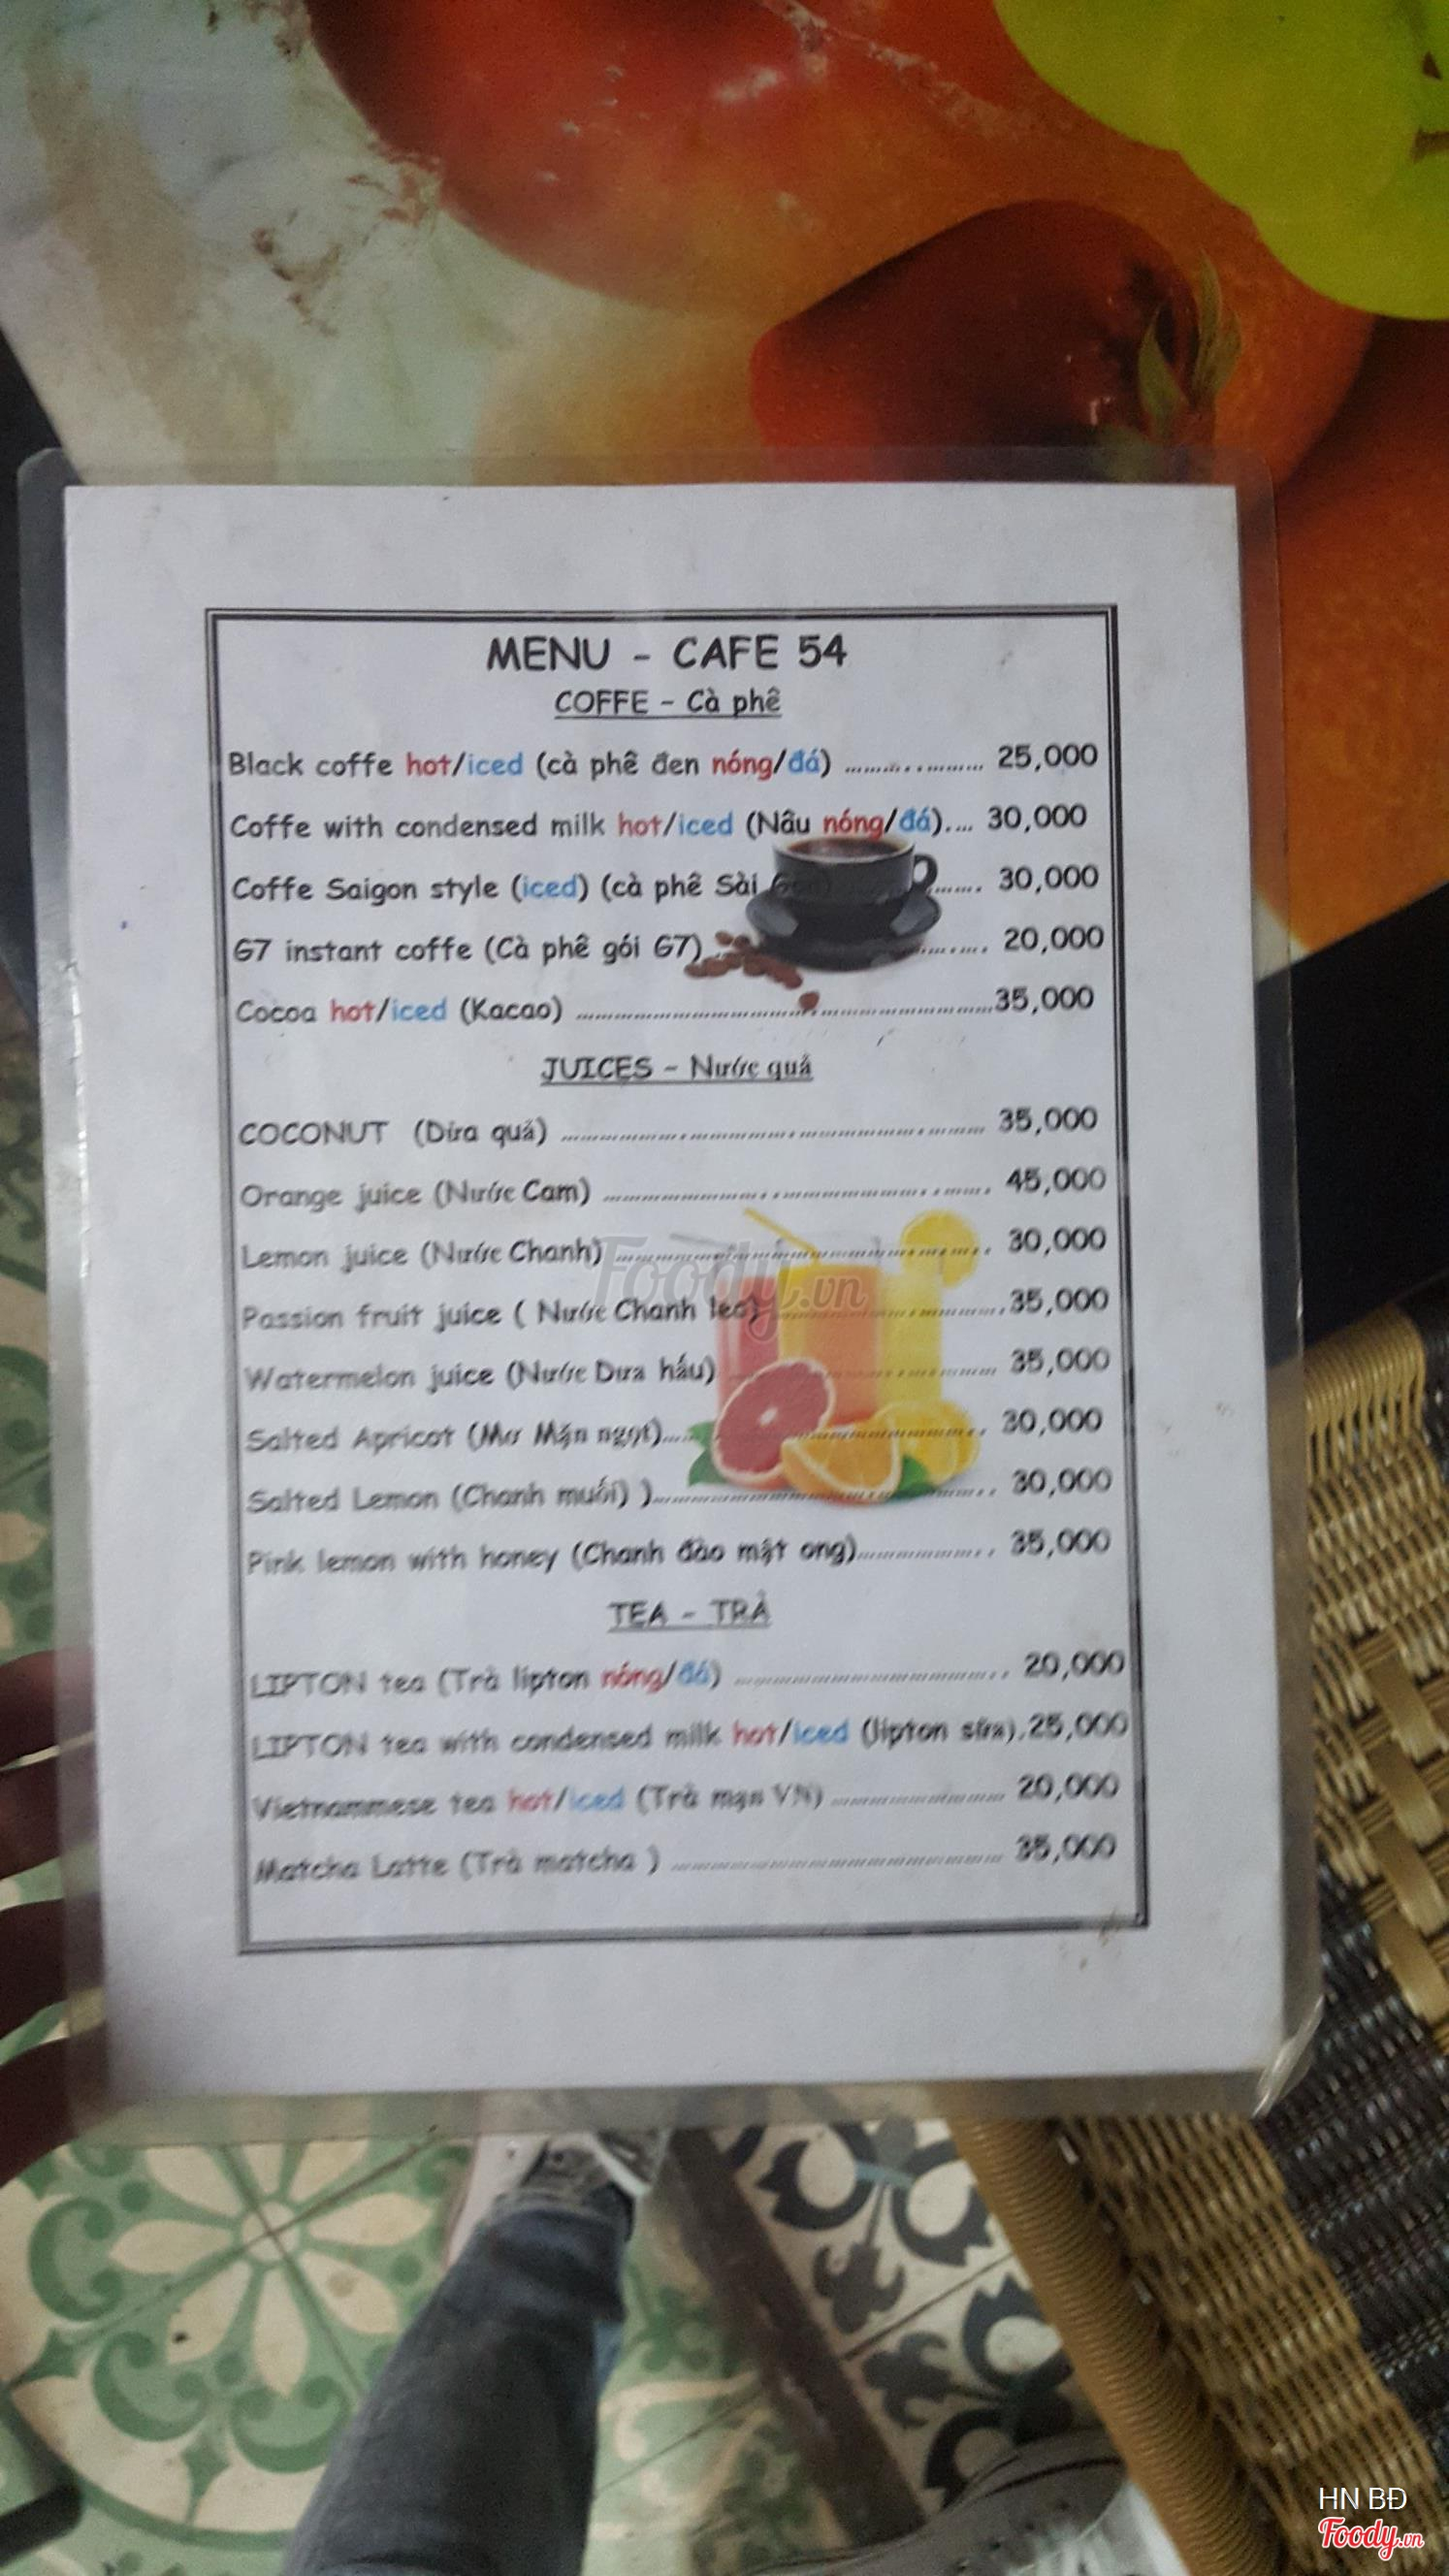 MENU - CAFE 54
COFFE - Cà phê
Black coffe hot/iced (cà phê đen nóng/đá) .................... 25,000
Coffe with condensed milk hot/iced (Nâu nóng/đá).... 30,000
Coffe Saigon style (iced) (cà phê Sài Gòn) ....... 30,000
G7 instant coffe (Cà phê gói G7) ........... 20,000
Cocoa hot/iced (Kacao) ............................................................35,000
JUICES - Nước quả
COCONUT (Dừa quả) ............................................................ 35,000
Orange juice (Nước Cam) ....................................................... 45,000
Lemon juice (Nước Chanh) ..................................................... 30,000
Passion fruit juice ( Nước Chanh leo) .................................35,000
Watermelon juice (Nước Dưa hấu) ..................................... 35,000
Salted Apricot (Mơ Mặn ngọt)............................................. 30,000
Salted Lemon (Chanh muối) )................................................ 30,000
Pink lemon with honey (Chanh đào mật ong).................... 35,000
TEA - TRÀ
LIPTON tea (Trà lipton nóng/đá) ........................................ 20,000
LIPTON tea with condensed milk hot/iced (lipton sữa).25,000
Vietnammese tea hot/iced (Trà mạn VN) ......................... 20,000
Matcha Latte (Trà matcha ) ................................................ 35,000
Foody.vn
HN BĐ
Foody.vn